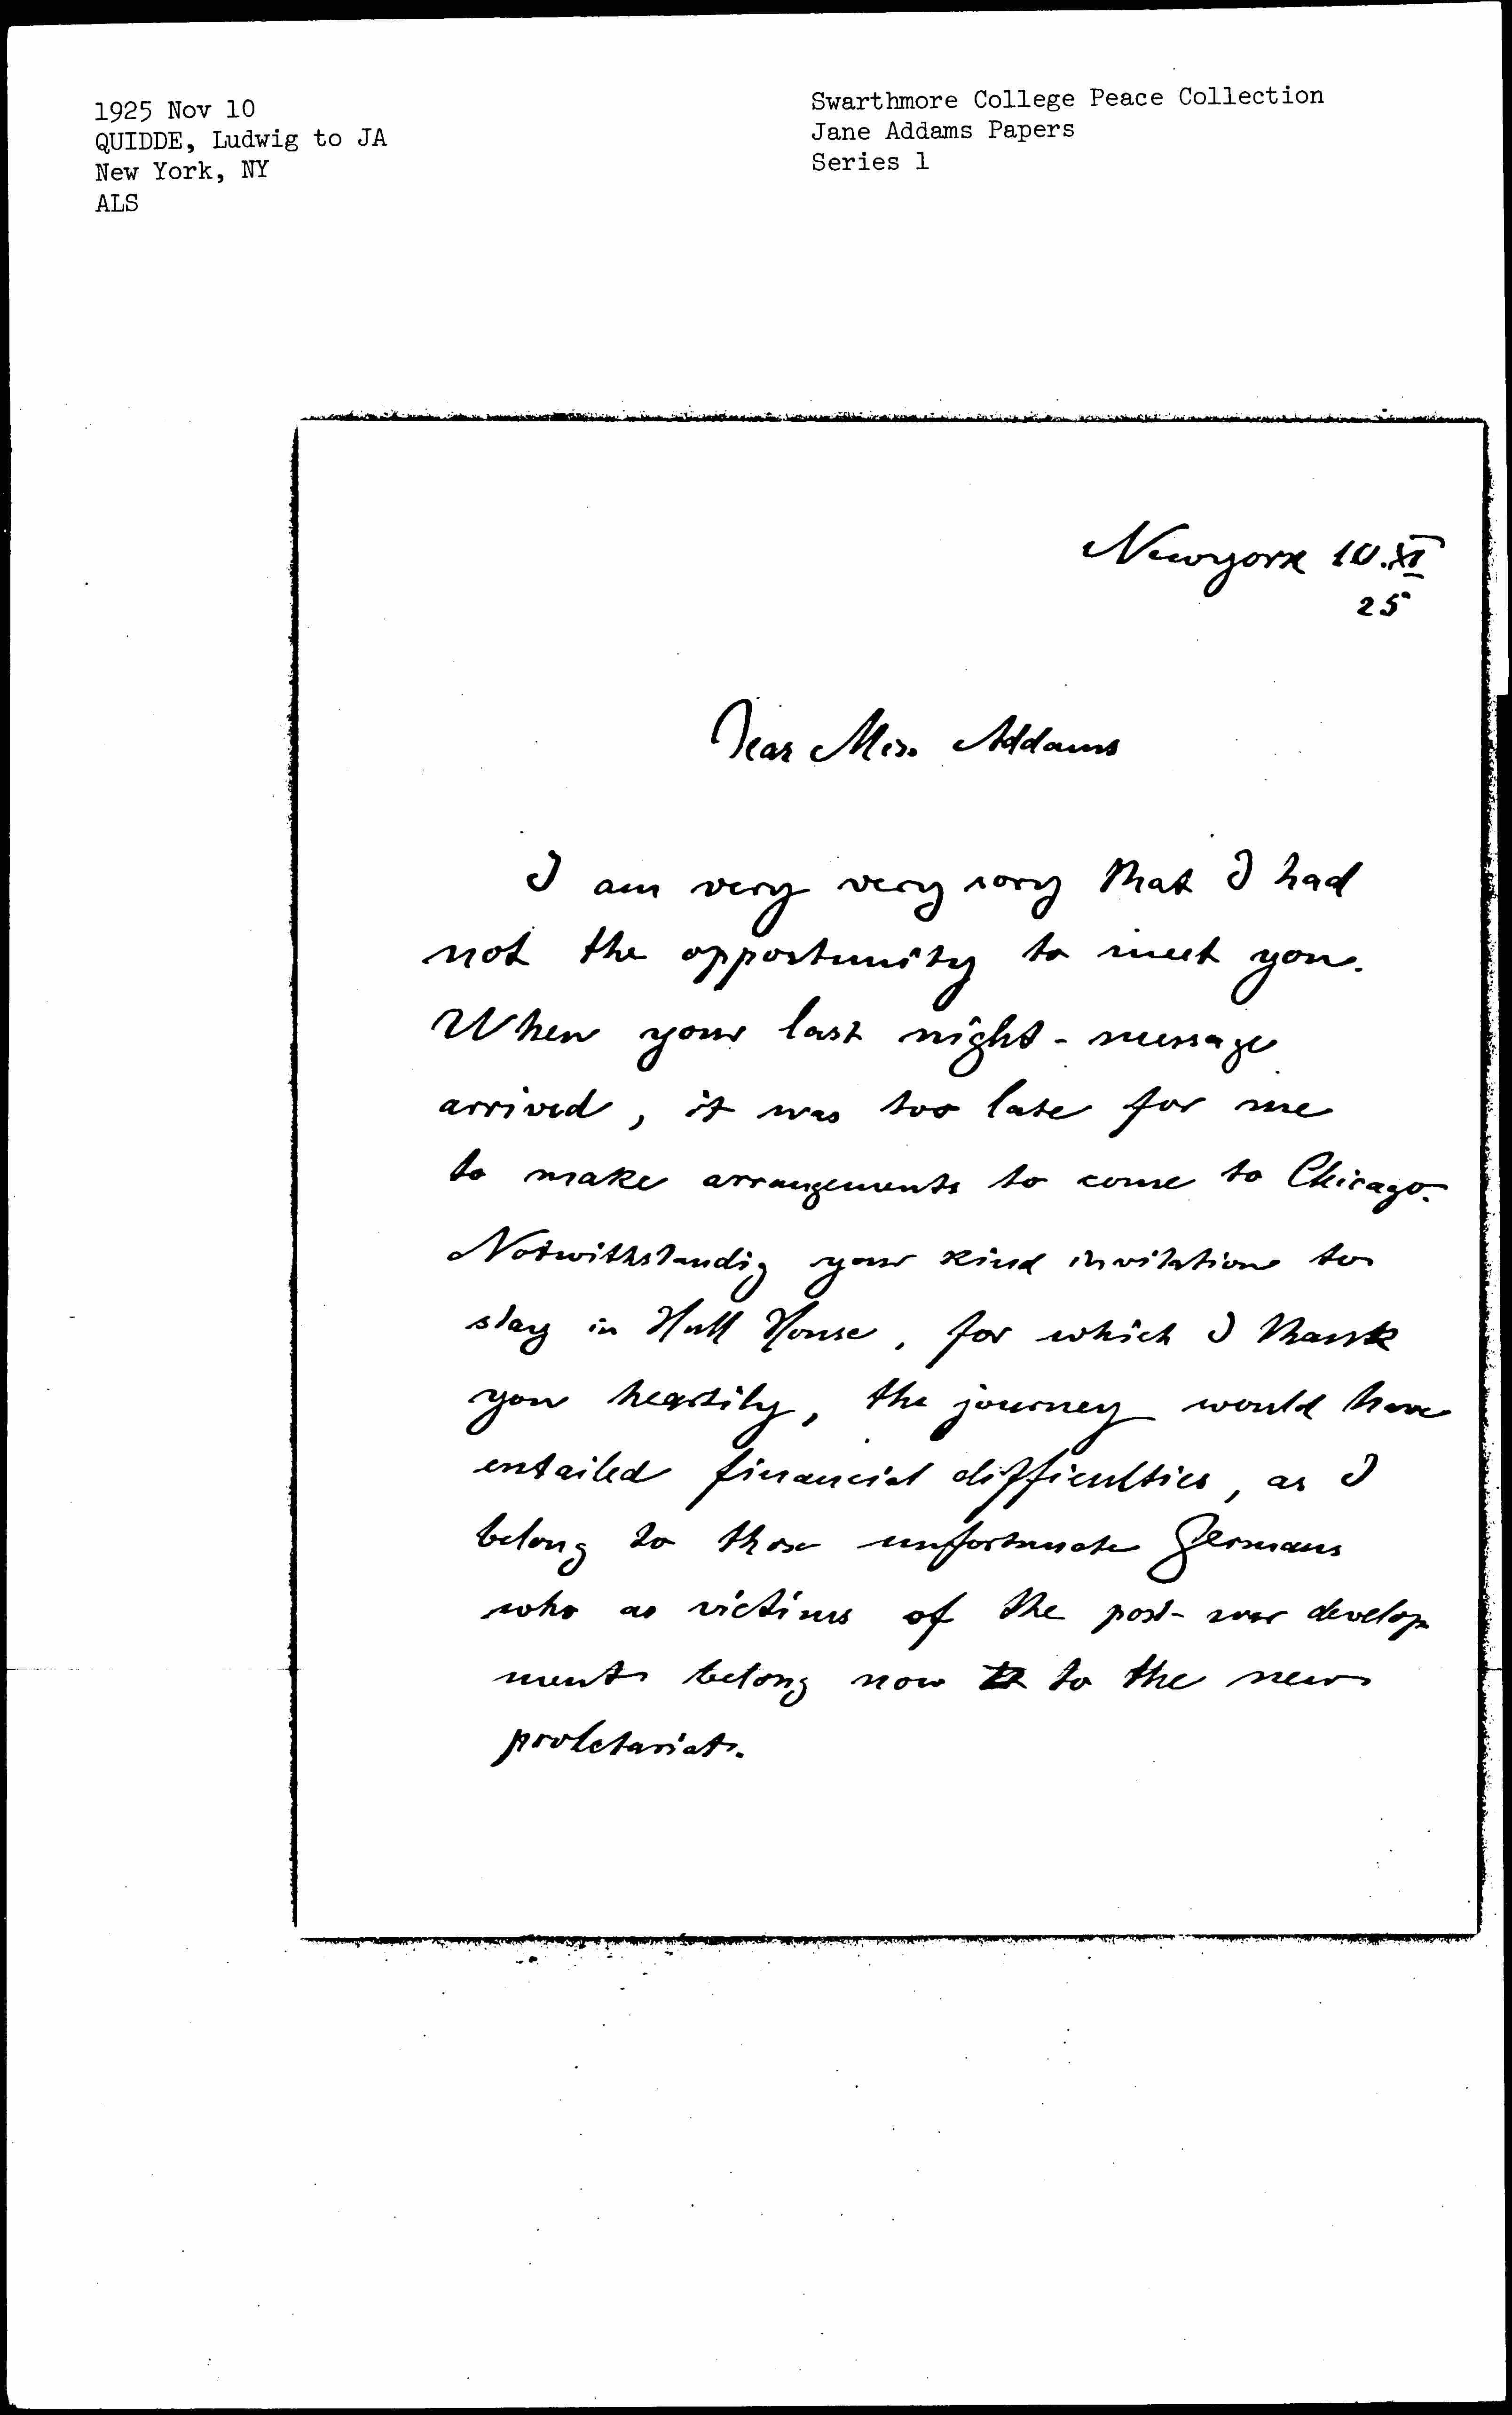 1925 Nov 10
QUIDDE, Ludwig to JA
New York, NY
ALS
Swarthmore College Peace Collection
Jane Addams Papers
Series 1
Newyork 10.XI
25
Dear Miss Addams
I am very very sory that I had
not the opportunity to meet you.
When your last night-message
arrived, it was too late for me
to make arrangements to come to Chicago.
Notwithstandig your kind invitation to
stay in Hull House, for which I thank
you heartily, the journey would have
entailed financial difficulties, as I
belong to those unfortunate Germans
who as victims of the post-war develop
ments belong now to the new
proletariat.